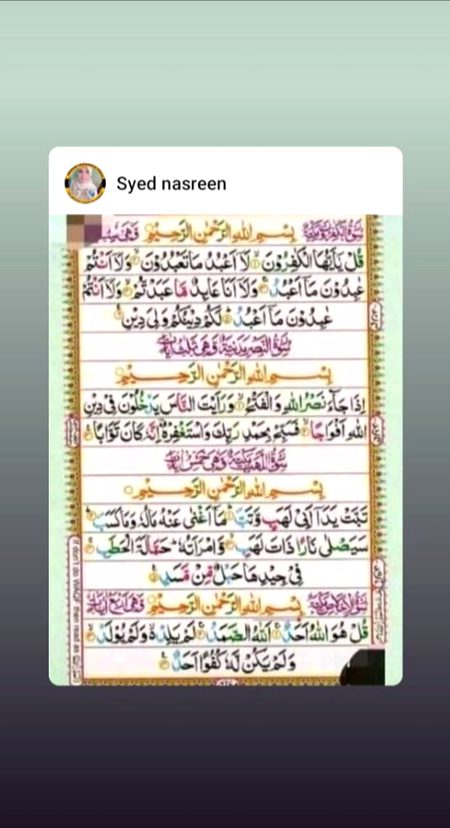 Syed nasreen
سُوْرَةُ الْكٰفِرُوْنَ مَكِّيَّةٌ بِسْمِ اللهِ الرَّحْمٰنِ الرَّحِيْمِ وَهِيَ سِتُّ
قُلْ يٰٓاَيُّهَا الْكٰفِرُوْنَ لَاۤ اَعْبُدُ مَا تَعْبُدُوْنَ وَلَاۤ اَنْتُمْ
عٰبِدُوْنَ مَاۤ اَعْبُدُ وَلَاۤ اَنَا عَابِدٌ مَّا عَبَدْتُّمْ وَلَاۤ اَنْتُمْ
عٰبِدُوْنَ مَاۤ اَعْبُدُ لَكُمْ دِيْنُكُمْ وَلِيَ دِيْنِ
سُوْرَةُ النَّصْرِ مَدَنِيَّةٌ وَّهِيَ ثَلٰثُ اٰيَاتٍ
بِسْمِ اللهِ الرَّحْمٰنِ الرَّحِيْمِ
اِذَا جَآءَ نَصْرُ اللهِ وَالْفَتْحُ وَرَاَيْتَ النَّاسَ يَدْخُلُوْنَ فِيْ دِيْنِ
اللهِ اَفْوَاجًا فَسَبِّحْ بِحَمْدِ رَبِّكَ وَاسْتَغْفِرْهُ اِنَّهٗ كَانَ تَوَّابًا
سُوْرَةُ اللَّهَبِ مَكِّيَّةٌ وَّهِيَ خَمْسُ اٰيَاتٍ
بِسْمِ اللهِ الرَّحْمٰنِ الرَّحِيْمِ
تَبَّتْ يَدَاۤ اَبِيْ لَهَبٍ وَّتَبَّ مَاۤ اَغْنٰى عَنْهُ مَالُهٗ وَمَا كَسَبَ
سَيَصْلٰى نَارًا ذَاتَ لَهَبٍ وَّامْرَاَتُهٗ حَمَّالَةَ الْحَطَبِ
فِيْ جِيْدِهَا حَبْلٌ مِّنْ مَّسَدٍ
سُوْرَةُ الْاِخْلَاصِ مَكِّيَّةٌ بِسْمِ اللهِ الرَّحْمٰنِ الرَّحِيْمِ وَهِيَ اَرْبَعُ اٰيَاتٍ
قُلْ هُوَ اللهُ اَحَدٌ اَللهُ الصَّمَدُ لَمْ يَلِدْ وَلَمْ يُوْلَدْ
وَلَمْ يَكُنْ لَّهٗ كُفُوًا اَحَدٌ
If don't do WAQF then read as